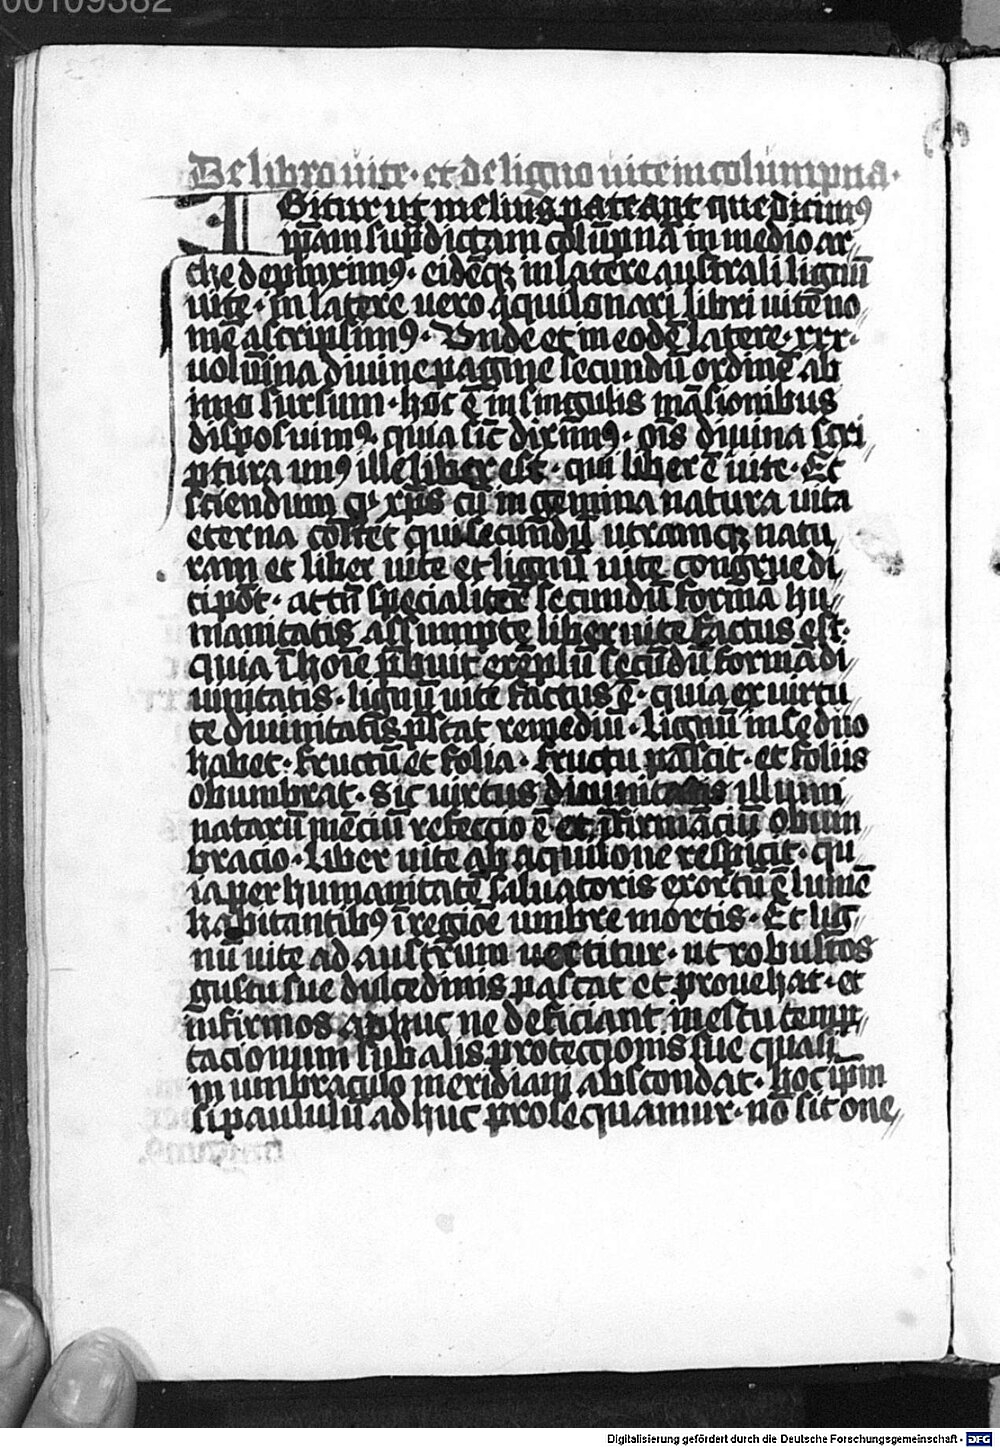 00109382
De libro uite · et de ligno uite in columpna ·
IGitur ut melius pateant que dicimꝰ
ip̄am sup͛dictam colūpnā in medio ar
che depinximꝰ · eidēqꝫ in latere australi lignū
uite · in latere uero aquilonari libri uite no
mē ascripsimꝰ · Unde et in eodē latere · xxx ·
uolumīna diuine pagine secundū ordinē ab
imo sursum · hoc ē in singulis māsionibus
disposuimꝰ · quia sic̄ diximꝰ · oīs diuina scri
ptura unꝰ ille liber est · qui liber ē uite · Et
sciendum qꝫ xp̄s cū in gemina natura uita
eterna cōstet qui secundū utramqꝫ natu
ram et liber uite et lignū uite congrue di
ci pōt · at tn̄ specialiter secundū formā hu
manitatis assumpte liber uite factus est ·
quia ī hoīe p̄buit exēplū secūdū formā di
uinitatis · lignū uite factus ē · quia ex uirtu
te diuinitatis p̄stat remediū · Lignū in se duo
habet · fructū et folia · fructu pascit · et foliis
obumbrat · Sic uirtus diuinitatis illumi
natarū mēciū refeccio ē et īfirmāciū obum
bracio · Liber uite ab aquilone respicit · qu
ia per humanitatē saluatoris exortū ē lumē
habitantibꝰ ī regiōe umbre mortis · Et lig
nū uite ad austrum uertitur · ut robustos
gustu sue dulcedinis pascat et prouehat · et
infirmos adhuc ne deficiant in estu temp
tacionum sub alis proteccionis sue quasi
in umbraculo meridiani abscondat · hoc ip̄m
si paululū adhuc prosequamur · nō sit one
Digitalisierung gefördert durch die Deutsche Forschungsgemeinschaft - DFG